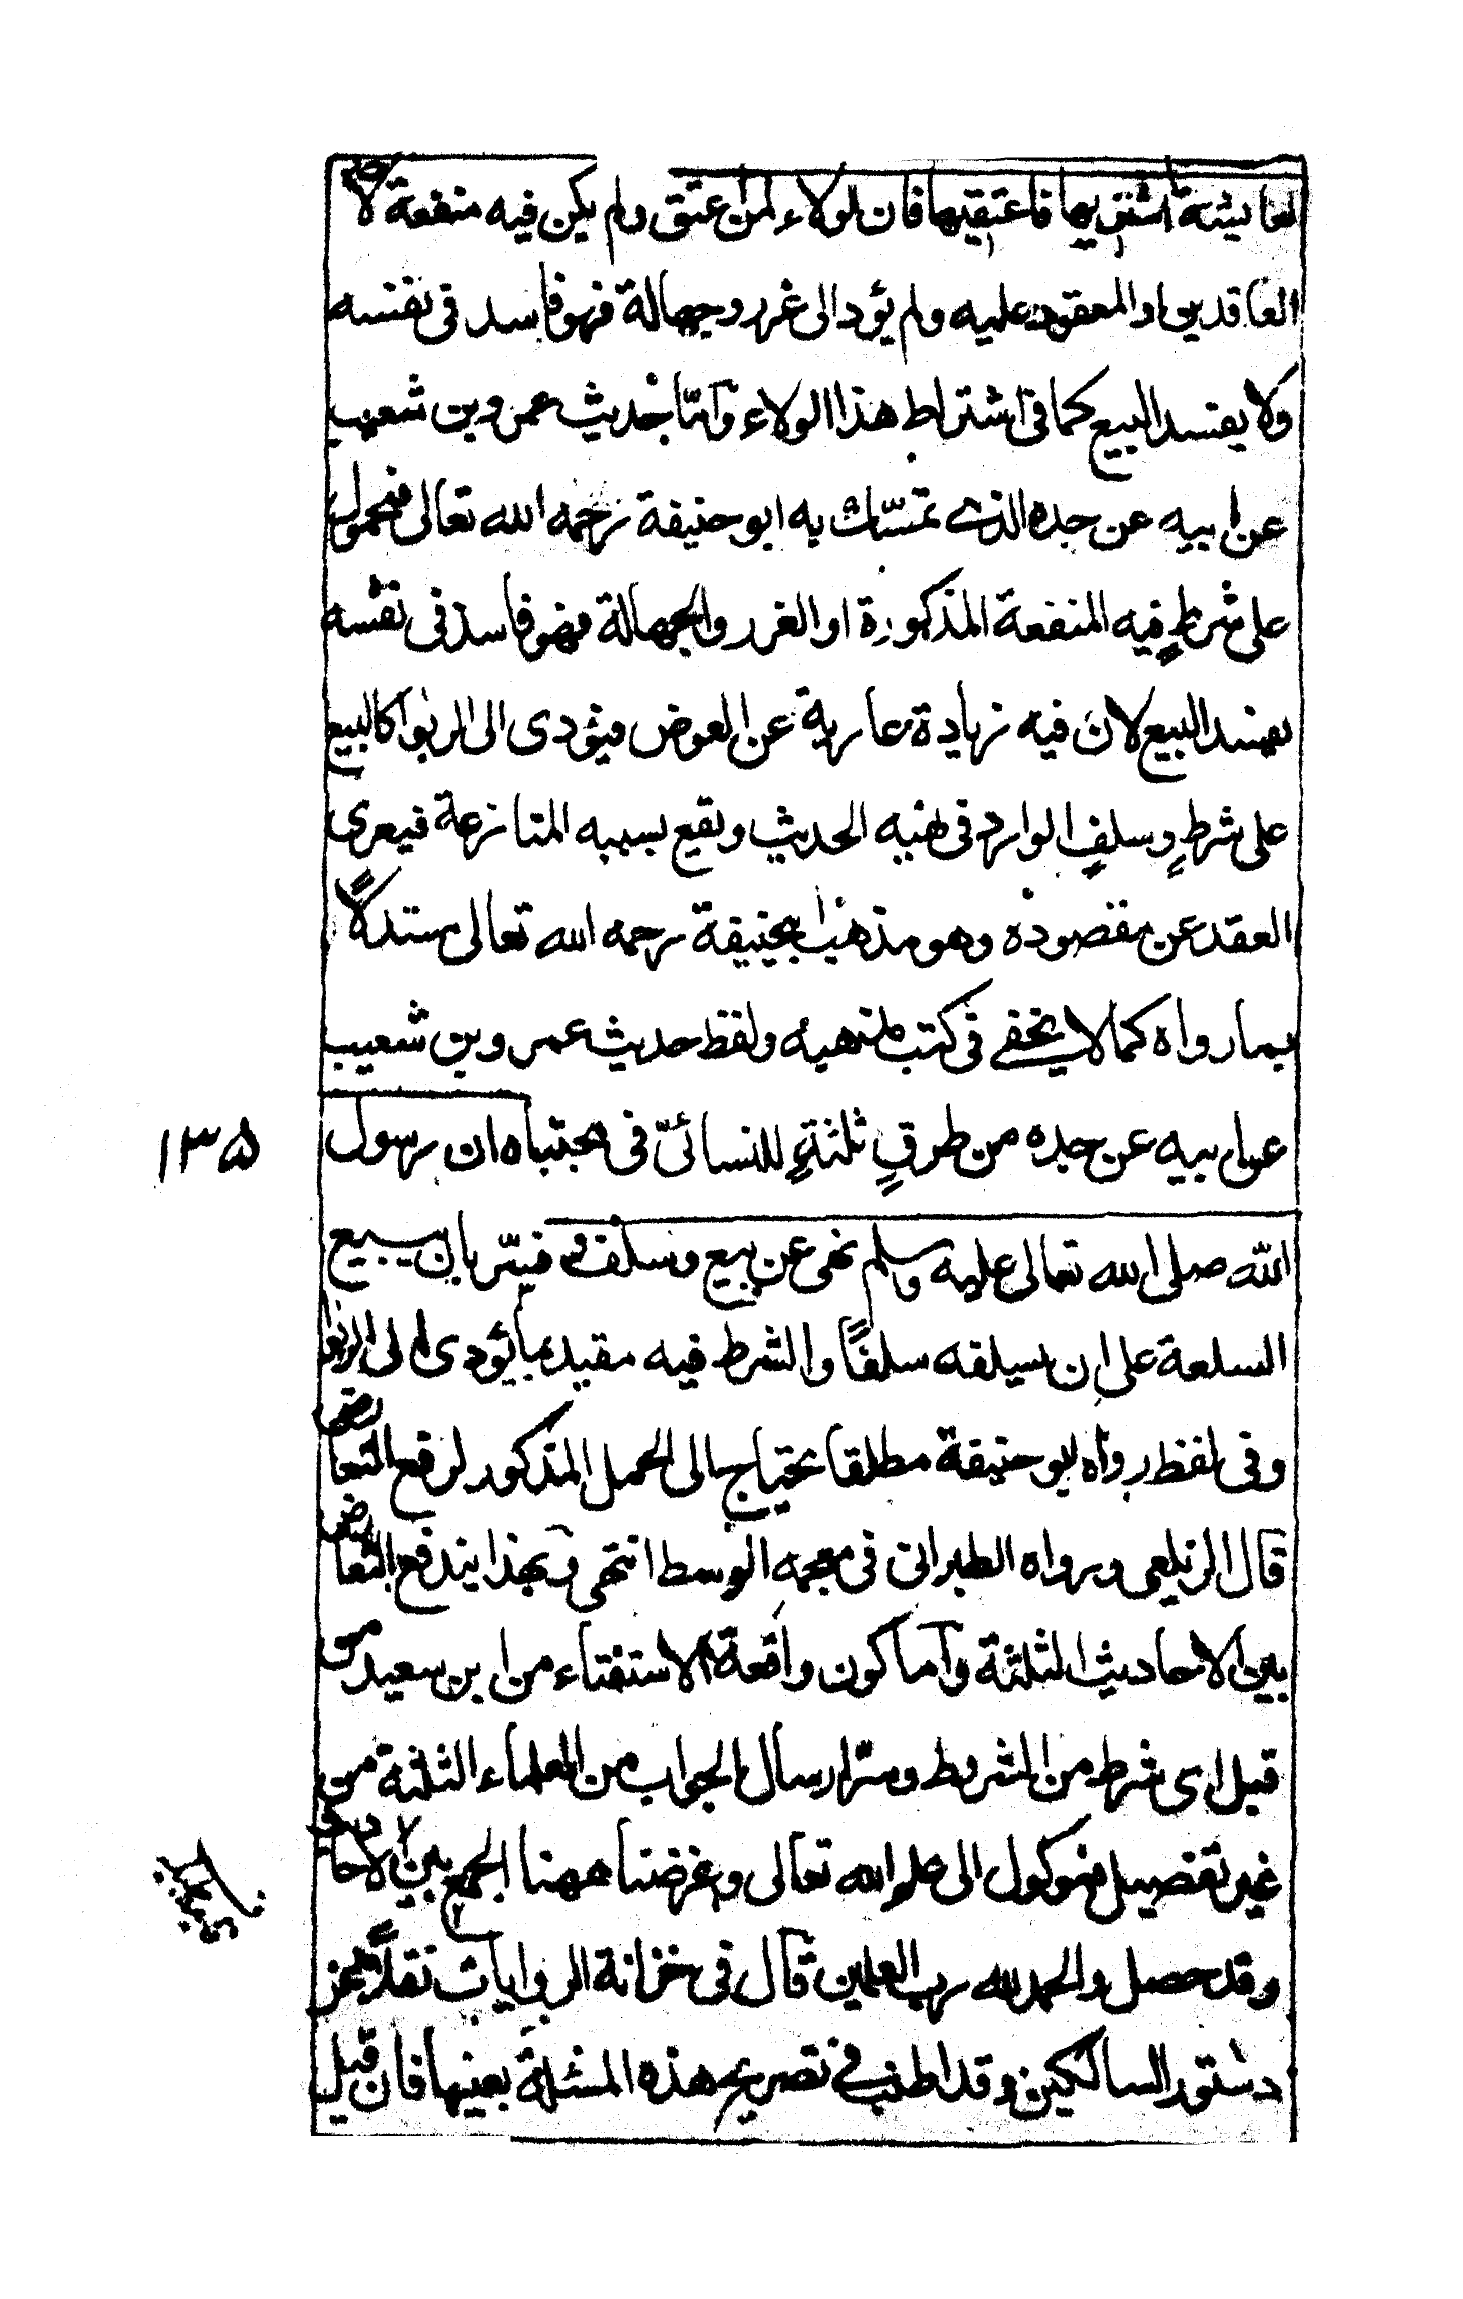 لعايشة اشتريها فاعتقيها فان لولاء لمن اعتق ولم يكن فيه منفعة لاحد
العاقدين او المعقود عليه ولم يؤد الى غرر وجهالة فهو فاسد فى نفسه
ولا يفسد البيع كما فى اشتراط هذا الولاء وامّا حديث عمرو بن شعيب
عن ابيه عن جده الذى تمسّك به ابو حنيفة رحمه الله تعالى فمحمول
على شرطٍ فيه المنفعة المذكورة او الغرر والجهالة فهو فاسد فى نفسه
يفسد البيع لان فيه زيادة عارية عن العوض فيؤدى الى الربوا كالبيع
على شرطٍ وسلفٍ الوارد فى نهيه الحديث ويقع بسببه المنازعة فيعرى
العقد عن مقصوده وهو مذهب ابيحنيفة رحمه الله تعالى مستدلاً
بما رواه كما لا يخفى فى كتب مذهبه ولفظ حديث عمرو بن شعيب
عن ابيه عن جده من طرقٍ ثلثةٍ للنسائىّ فى مجتباه ان رسول
١٣٥
اللّه صلى الله تعالى عليه وسلم نهى عن بيع وسلف وفسّر بان يبيع
السلعة على ان يسلفه سلفًا والشرط فيه مقيد بما يؤدى الى الربوا
وفى لفظ رواه ابو حنيفة مطلقا يحتاج الى الحمل المذكور لرفع التعارض
قال الزيلعى ورواه الطبرانى فى معجمه الوسط انتهى وبهذا يندفع التعارض
بين الاحاديث الثلثة وآما كون واقعة الاستفتاء من ابن سعيد من
قبل اى شرط من الشروط وسرّ ارسال الجواب من العلماء الثلثة من
غير تفصيل فموكول الى علم الله تعالى وغرضنا ههنا الجمع بين الاحاديث
وقد حصل والحمد لله رب العلمين قال فى خزانة الروايات نقلاً عن
دستور السالكين وقد اطنب فى تصريح هذه المسئلة بعينها فان قيل